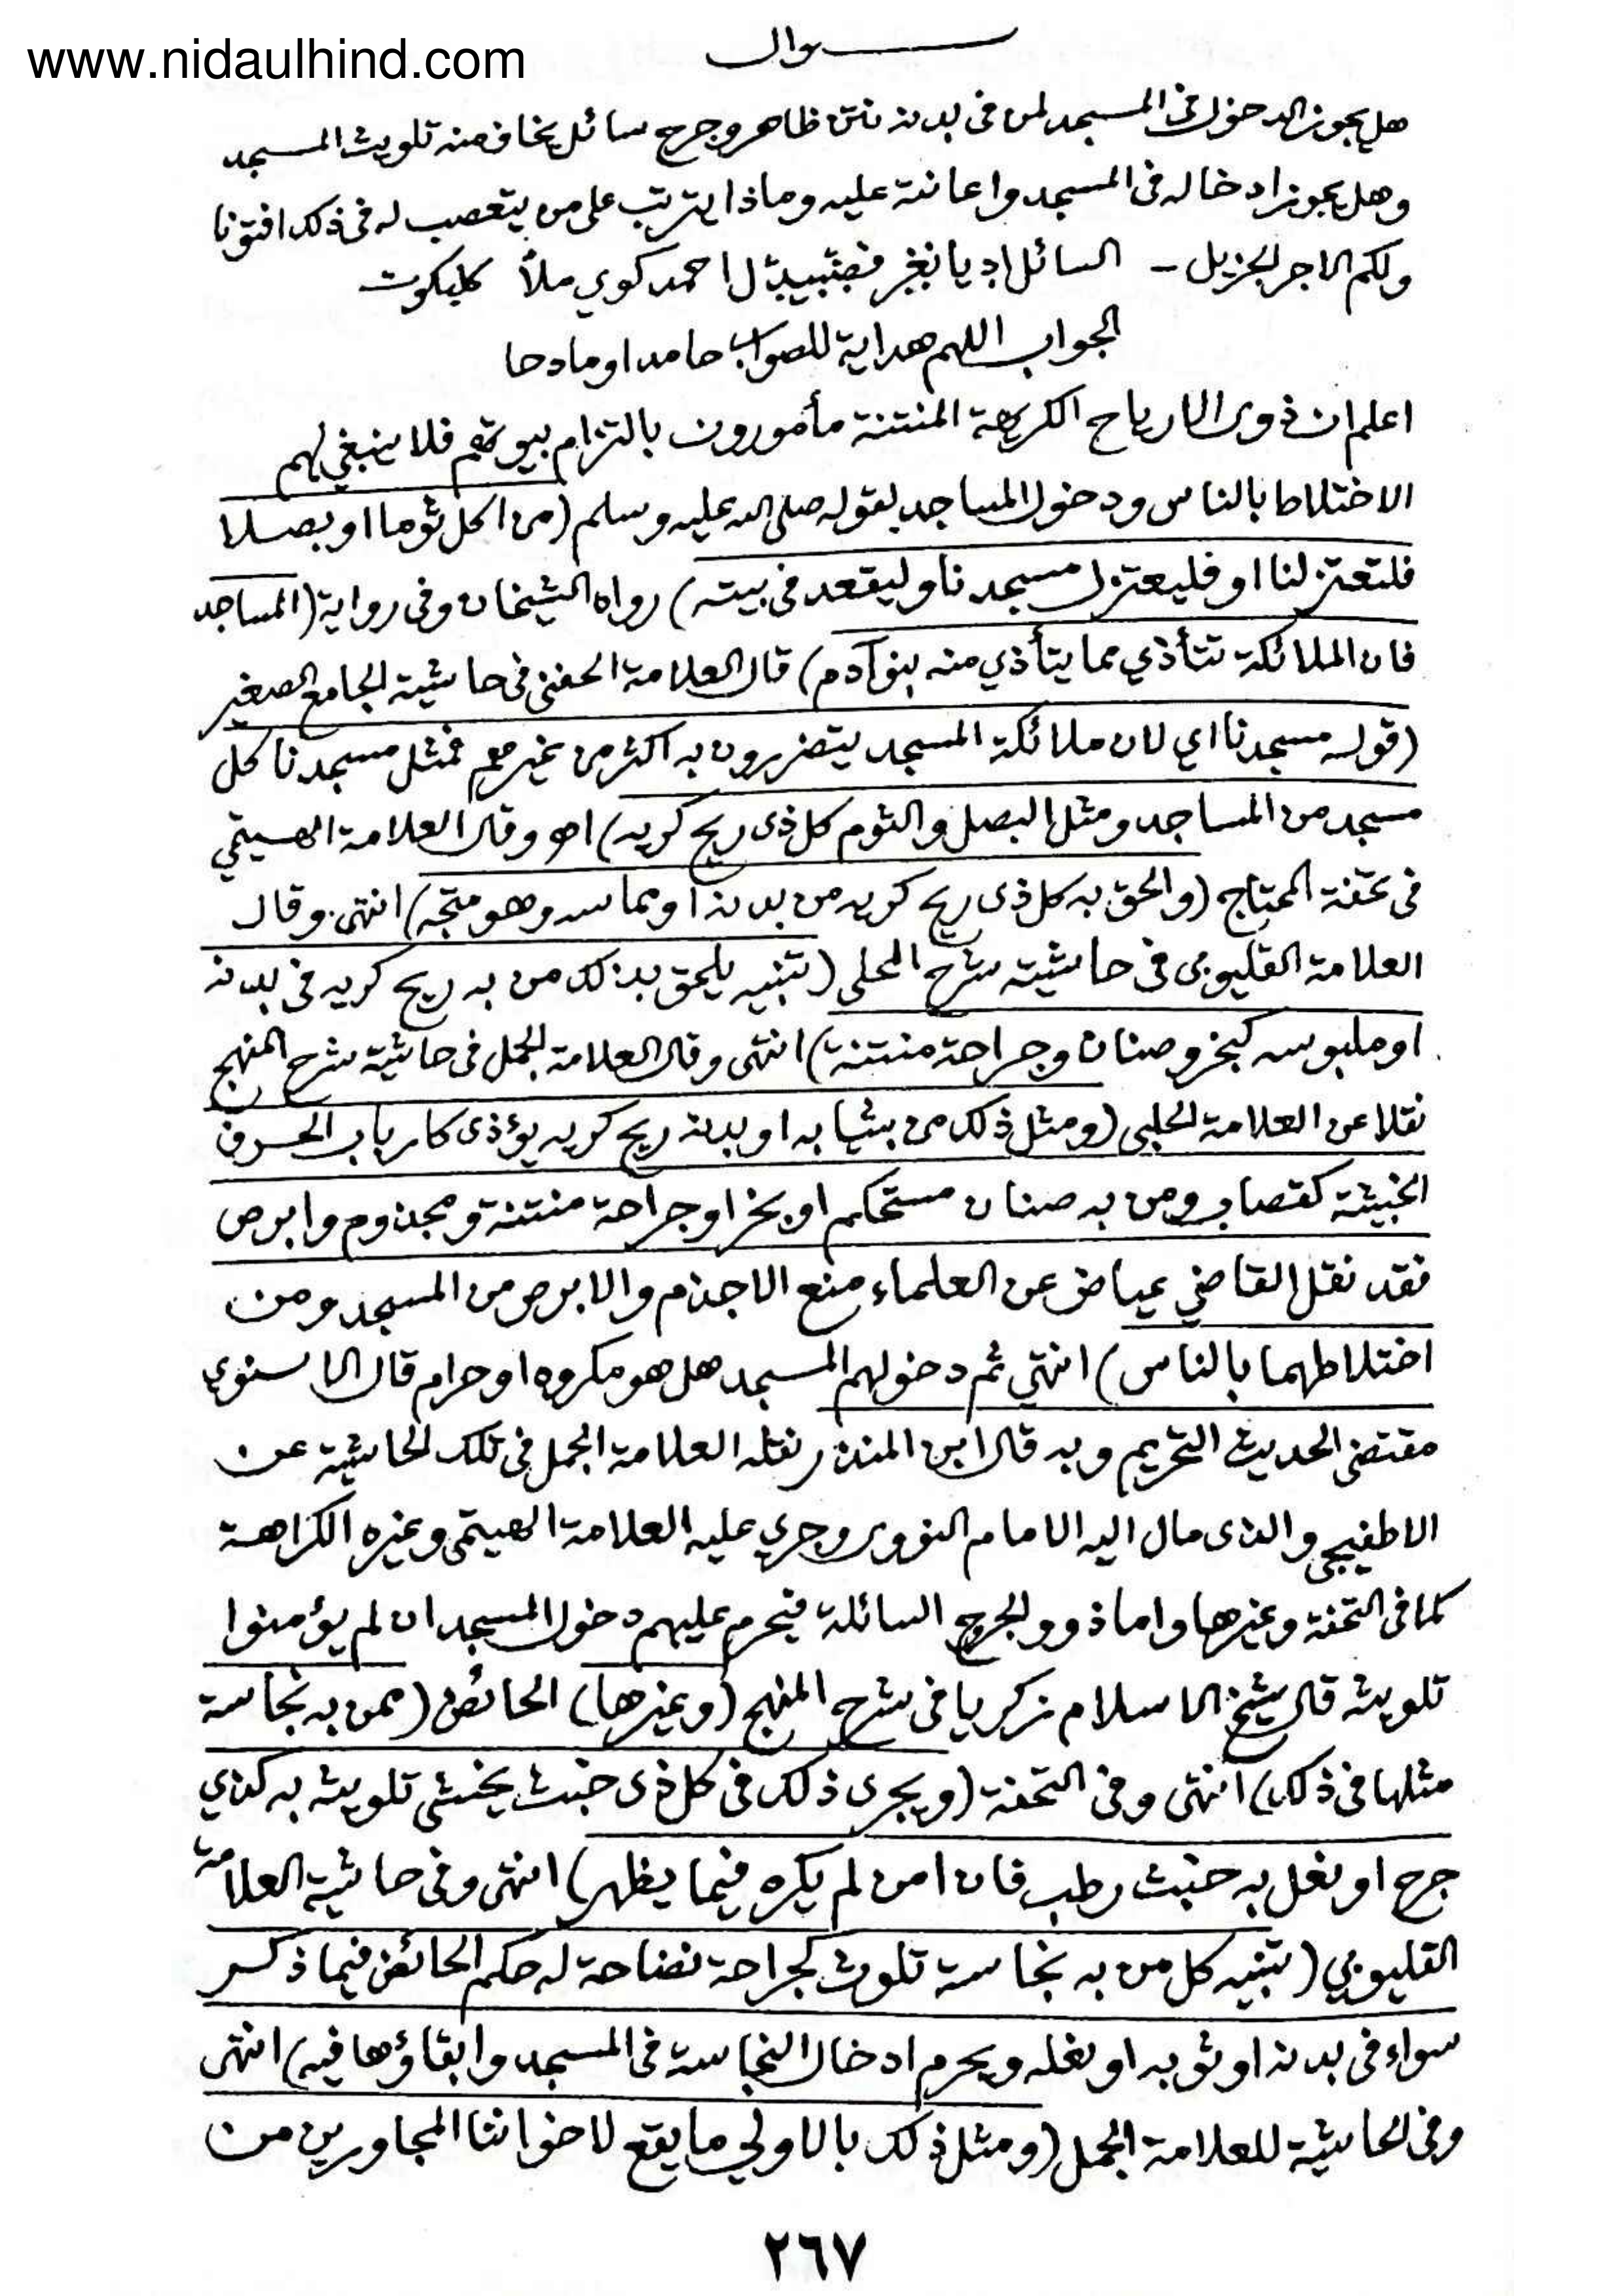 www.nidaulhind.com
سوال
هل يجوز الدخول فى المسجد لمن فى بدنه نتن ظاهر وجرح سائل يخاف منه تلويث المسجد
وهل يجوز ادخاله فى المسجد واعانته عليه وماذا يترتب على من يتعصب له فى ذلك افتونا
ولكم الاجر الجزيل - السائل احمد كوي ملا كليكوت
الجواب اللهم هداية للصواب حامدا ومادحا
اعلم ان ذوى الارياح الكريهة المنتنة مأمورون بالتزام بيوتهم فلا ينبغي لهم
الاختلاط بالناس ودخول المساجد لقوله صلى الله عليه وسلم (من اكل ثوما او بصلا
فلتعتزلنا او فليعتزل مسجدنا وليقعد فى بيته) رواه الشيخان وفى رواية (المساجد
فان الملائكة تتأذي مما يتأذي منه بنو آدم) قال العلامة الحفنى فى حاشية الجامع الصغير
(قوله مسجدنا اي لان ملائكة المسجد يتضررون به اكثر من غيرهم فمثل مسجدنا كل
مسجد من المساجد ومثل البصل والثوم كل ذى ريح كريه) اهـ وقال العلامة الهيتمي
فى تحفة المحتاج (والحق به كل ذى ريح كريه من بدنه او مماسه وهو متجه) انتهى. وقال
العلامة القليوبى فى حاشيته شرح المحلى (تنبيه يلحق بذلك من به ريح كريه فى بدنه
او ملبوسه كبخر وصنان وجراحة منتنة) انتهى وقال العلامة الجمل فى حاشية شرح المنهج
نقلا عن العلامة الحلبى (ومثل ذلك من بثيابه او بدنه ريح كريه يؤذى كارباب الحرف
الخبيثة كقصاب ومن به صنان مستحكم او بخر او جراحة منتنة ومجذوم وابرص
فقد نقل القاضي عياض عن العلماء منع الاجذم والابرص من المسجد ومن
اختلاطهما بالناس) انتهي ثم دخولهم المسجد هل هو مكروه او حرام قال الاسنوي
مقتضى الحديث التحريم وبه قال ابن المنذر نقله العلامة الجمل فى تلك الحاشية عن
الاطفيحى والذى مال اليه الامام النووى وجري عليه العلامة الهيتمى وغيره الكراهة
كما فى التحفة وغيرها واما ذوو الجروح السائلة فيحرم عليهم دخول المسجد ان لم يؤمنوا
تلويثه قال شيخ الاسلام زكريا فى شرح المنهج (وغيرها) الحائض (ممن به نجاسة
مثلها فى ذلك) انتهى وفى التحفة (ويجرى ذلك فى كل ذى خبث يخشى تلويثه به كذي
جرح او نعل به خبث رطب فان امن لم يكره فيما يظهر) انتهى وفى حاشية العلامة
القليوبي (تنبيه كل من به نجاسة تلوث كجراحة نضاحة له حكم الحائض فيما ذكر
سواء فى بدنه او ثوبه او نعله ويحرم ادخال النجاسة فى المسجد وابقاؤها فيه) انتهى
وفى الحاشية للعلامة الجمل (ومثل ذلك بالاولي ما يقع لاخواننا المجاورين من
٢٦٧